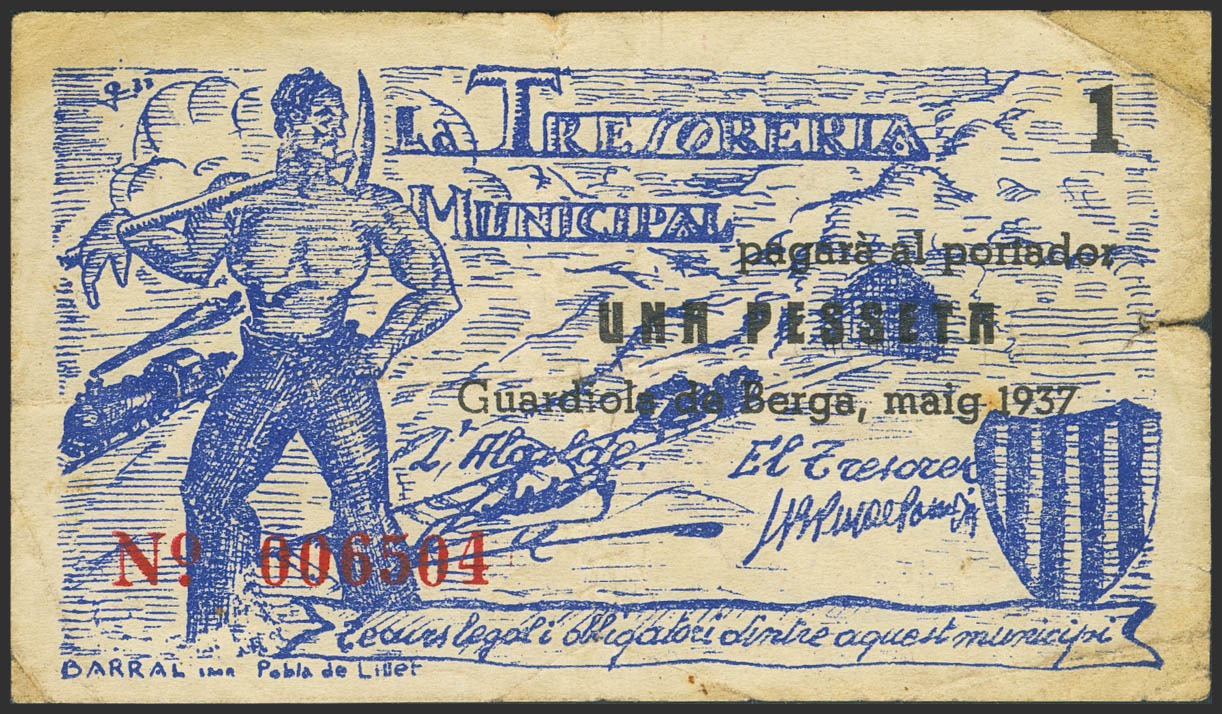 La Tresoreria
1
Municipal
pagarà al portador
UNA PESSETA
Guardiola de Berga, maig 1937
L'Alcalde. El Tresorer
Nº 006504
Decurs legal i obligatori dintre aquest municipi
BARRAL IMP. Pobla de Lillet